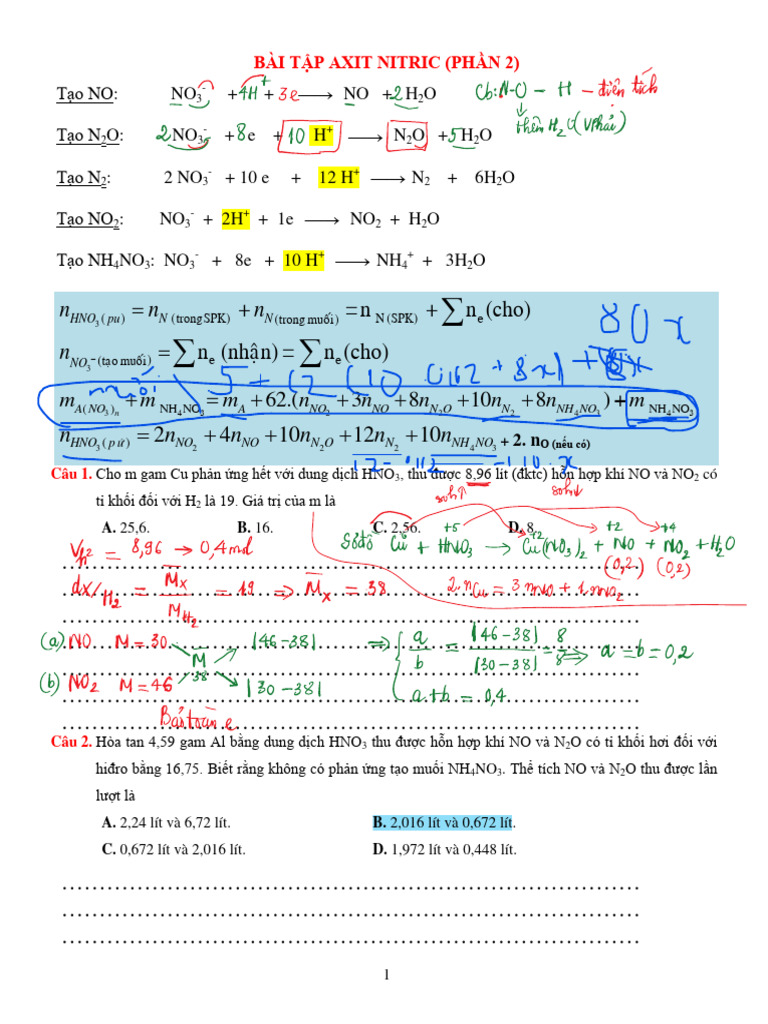 BÀI TẬP AXIT NITRIC (PHẦN 2)
Tạo NO: NO₃⁻ + 4H⁺ + 3e ⟶ NO + 2 H₂O Cb: N-O – H – điện tích
thêm H₂O (VPhải)
Tạo N₂O: 2 NO₃⁻ + 8e + 10 H⁺ ⟶ N₂O + 5 H₂O
Tạo N₂: 2 NO₃⁻ + 10 e + 12 H⁺ ⟶ N₂ + 6H₂O
Tạo NO₂: NO₃⁻ + 2H⁺ + 1e ⟶ NO₂ + H₂O
Tạo NH₄NO₃: NO₃⁻ + 8e + 10 H⁺ ⟶ NH₄⁺ + 3H₂O
n HNO₃(pu) = n N (trong SPK) + n N(trong muối) = n N (SPK) + ∑ nₑ (cho)
80 x
n NO₃⁻ (tạo muối) = ∑ nₑ (nhận) = ∑ nₑ (cho)
muối 5 + 62 (10 . 0,162 + 8x) +
m A(NO₃)ₙ + m NH₄NO₃ = m A + 62.(n NO₂ + 3n NO + 8n N₂O + 10n N₂ + 8n NH₄NO₃) + m NH₄NO₃
n HNO₃(pứ) = 2n NO₂ + 4n NO + 10n N₂O + 12n N₂ + 10n NH₄NO₃ + 2. nO (nếu có)
Câu 1. Cho m gam Cu phản ứng hết với dung dịch HNO₃, thu được 8,96 lít (đktc) hỗn hợp khí NO và NO₂ có
tỉ khối đối với H₂ là 19. Giá trị của m là
A. 25,6. B. 16. C. 2,56. D. 8.
soh↑ soh↓
+5 +2 +2 +4
Vh² = 8,96 → 0,4 mol Sơ đồ Cu + HNO₃ → Cu(NO₃)₂ + NO + NO₂ + H₂O
(0,2) (0,2)
dx/H₂ = M̅x / M H₂ = 19 ⇒ M̅x = 38 2.nCu = 3 nNO + 1 nNO₂
(a) NO M = 30 |46-38| ⇒ a/b = |46-38| / |30-38| = 8/8 ⇒ a = b = 0,2
M̅
38
(b) NO₂ M = 46 |30-38| a+b = 0,4
Bảo toàn e
Câu 2. Hòa tan 4,59 gam Al bằng dung dịch HNO₃ thu được hỗn hợp khí NO và N₂O có tỉ khối hơi đối với
hiđro bằng 16,75. Biết rằng không có phản ứng tạo muối NH₄NO₃. Thể tích NO và N₂O thu được lần
lượt là
A. 2,24 lít và 6,72 lít. B. 2,016 lít và 0,672 lít.
C. 0,672 lít và 2,016 lít. D. 1,972 lít và 0,448 lít.
1